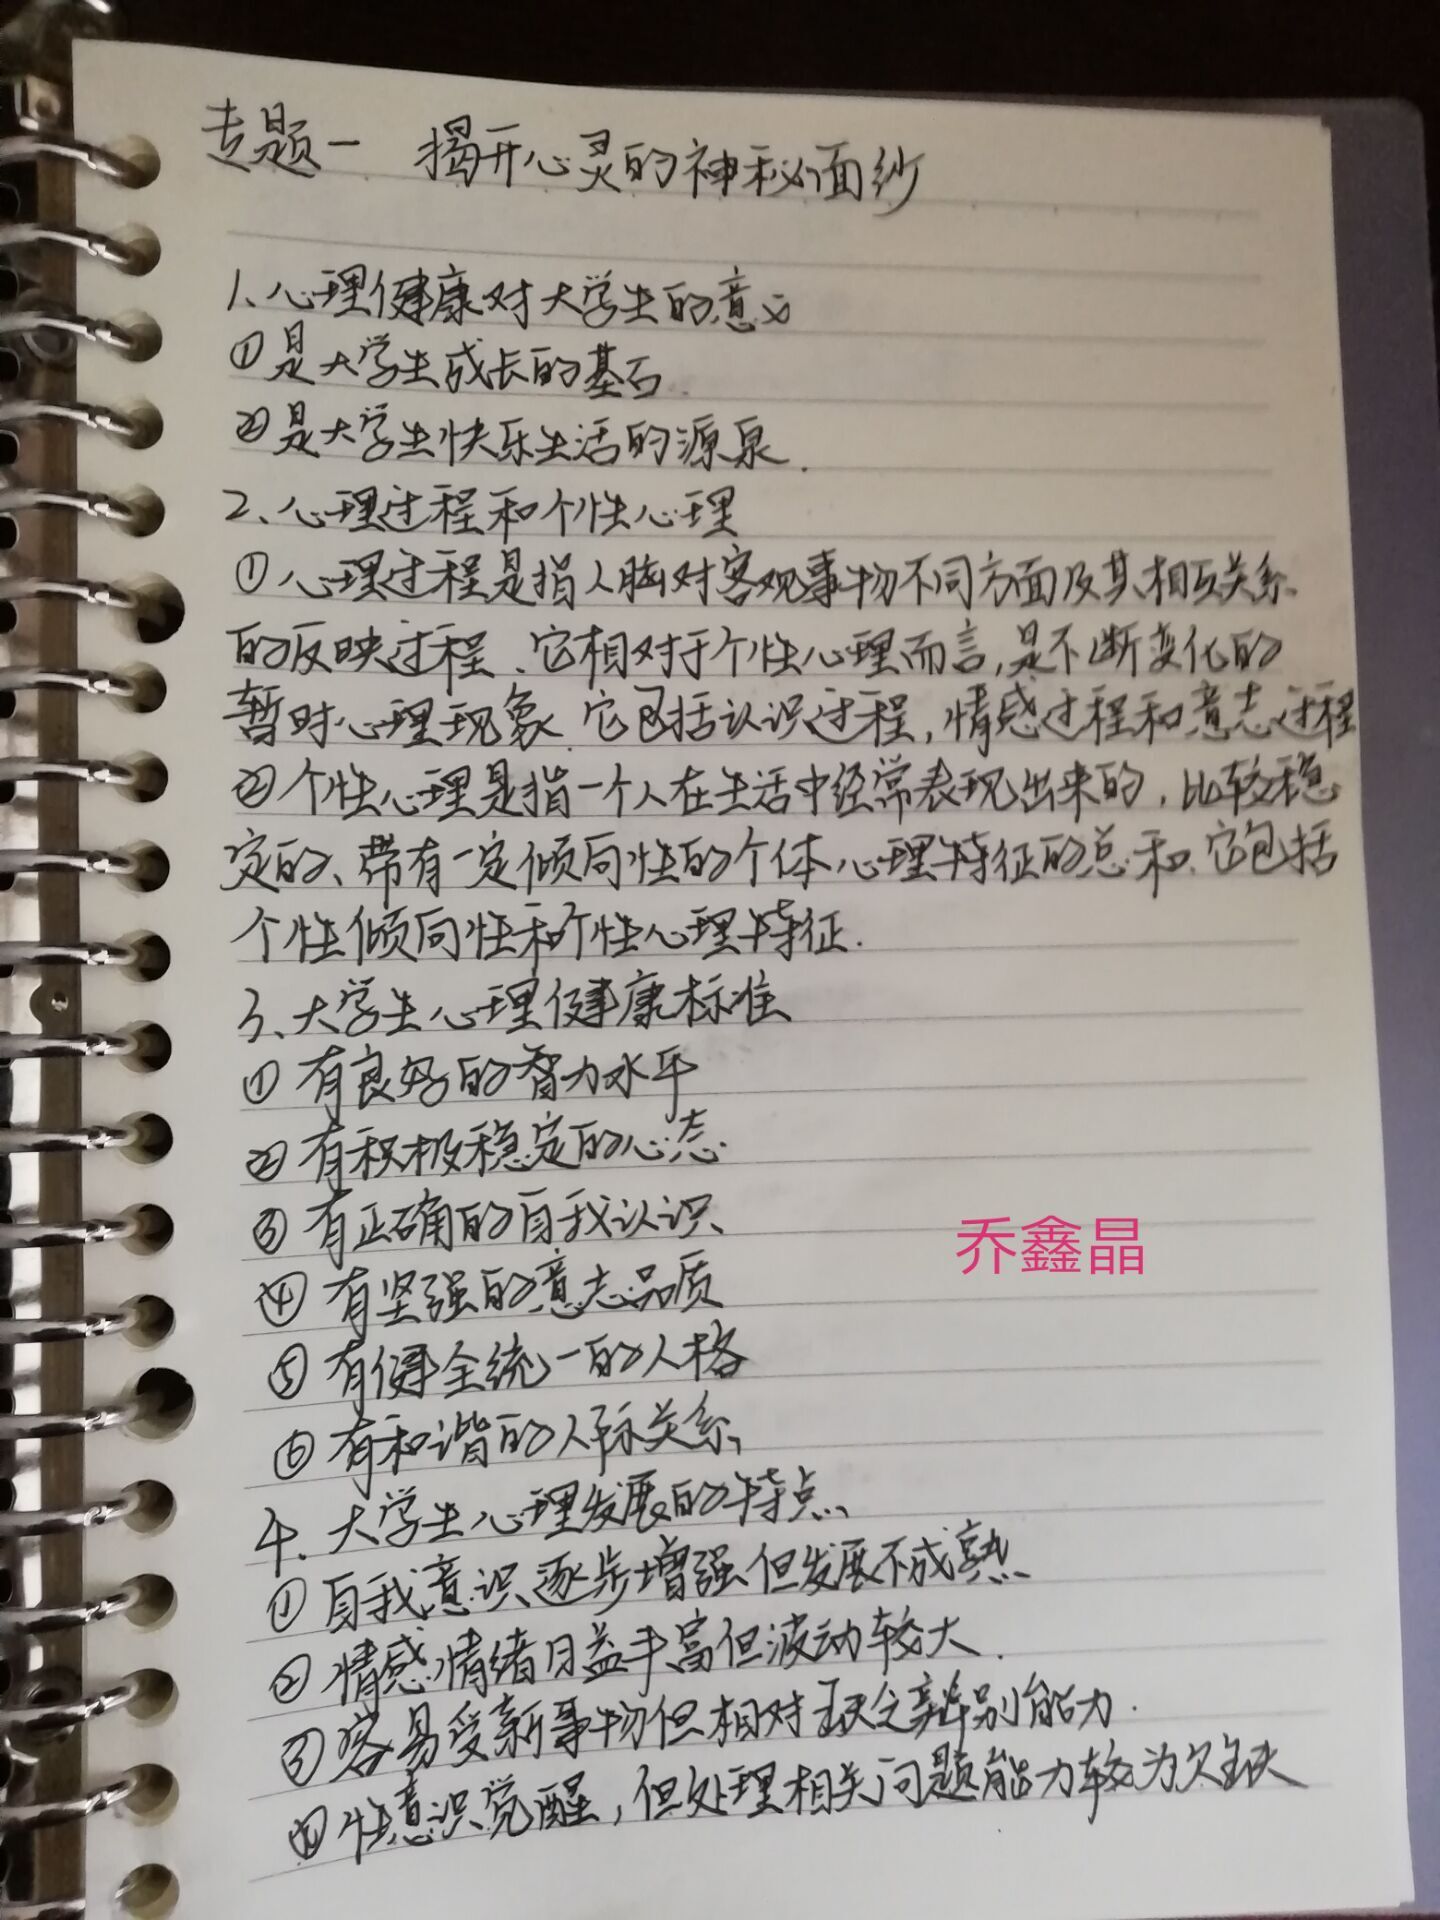 专题一 揭开心灵的神秘面纱
1、心理健康对大学生的意义
①是大学生成长的基石.
②是大学生快乐生活的源泉.
2、心理过程和个性心理
①心理过程是指人脑对客观事物不同方面及其相互关系
的反映过程、它相对于个性心理而言,是不断变化的
暂时心理现象.它包括认识过程,情感过程和意志过程
②个性心理是指一个人在生活中经常表现出来的,比较稳
定的、带有一定倾向性的个体心理特征的总和.它包括
个性倾向性和个性心理特征.
3、大学生心理健康标准
①有良好的智力水平
②有积极稳定的心态
③有正确的自我认识、
乔鑫晶
④有坚强的意志品质
⑤有健全统一的人格
⑥有和谐的人际关系、
4.大学生心理发展的特点、
①自我意识逐步增强但发展不成熟
②情感情绪日益丰富但波动较大.
③容易受新事物但相对缺乏辨别能力.
④性意识觉醒,但处理相关问题能力较为欠缺